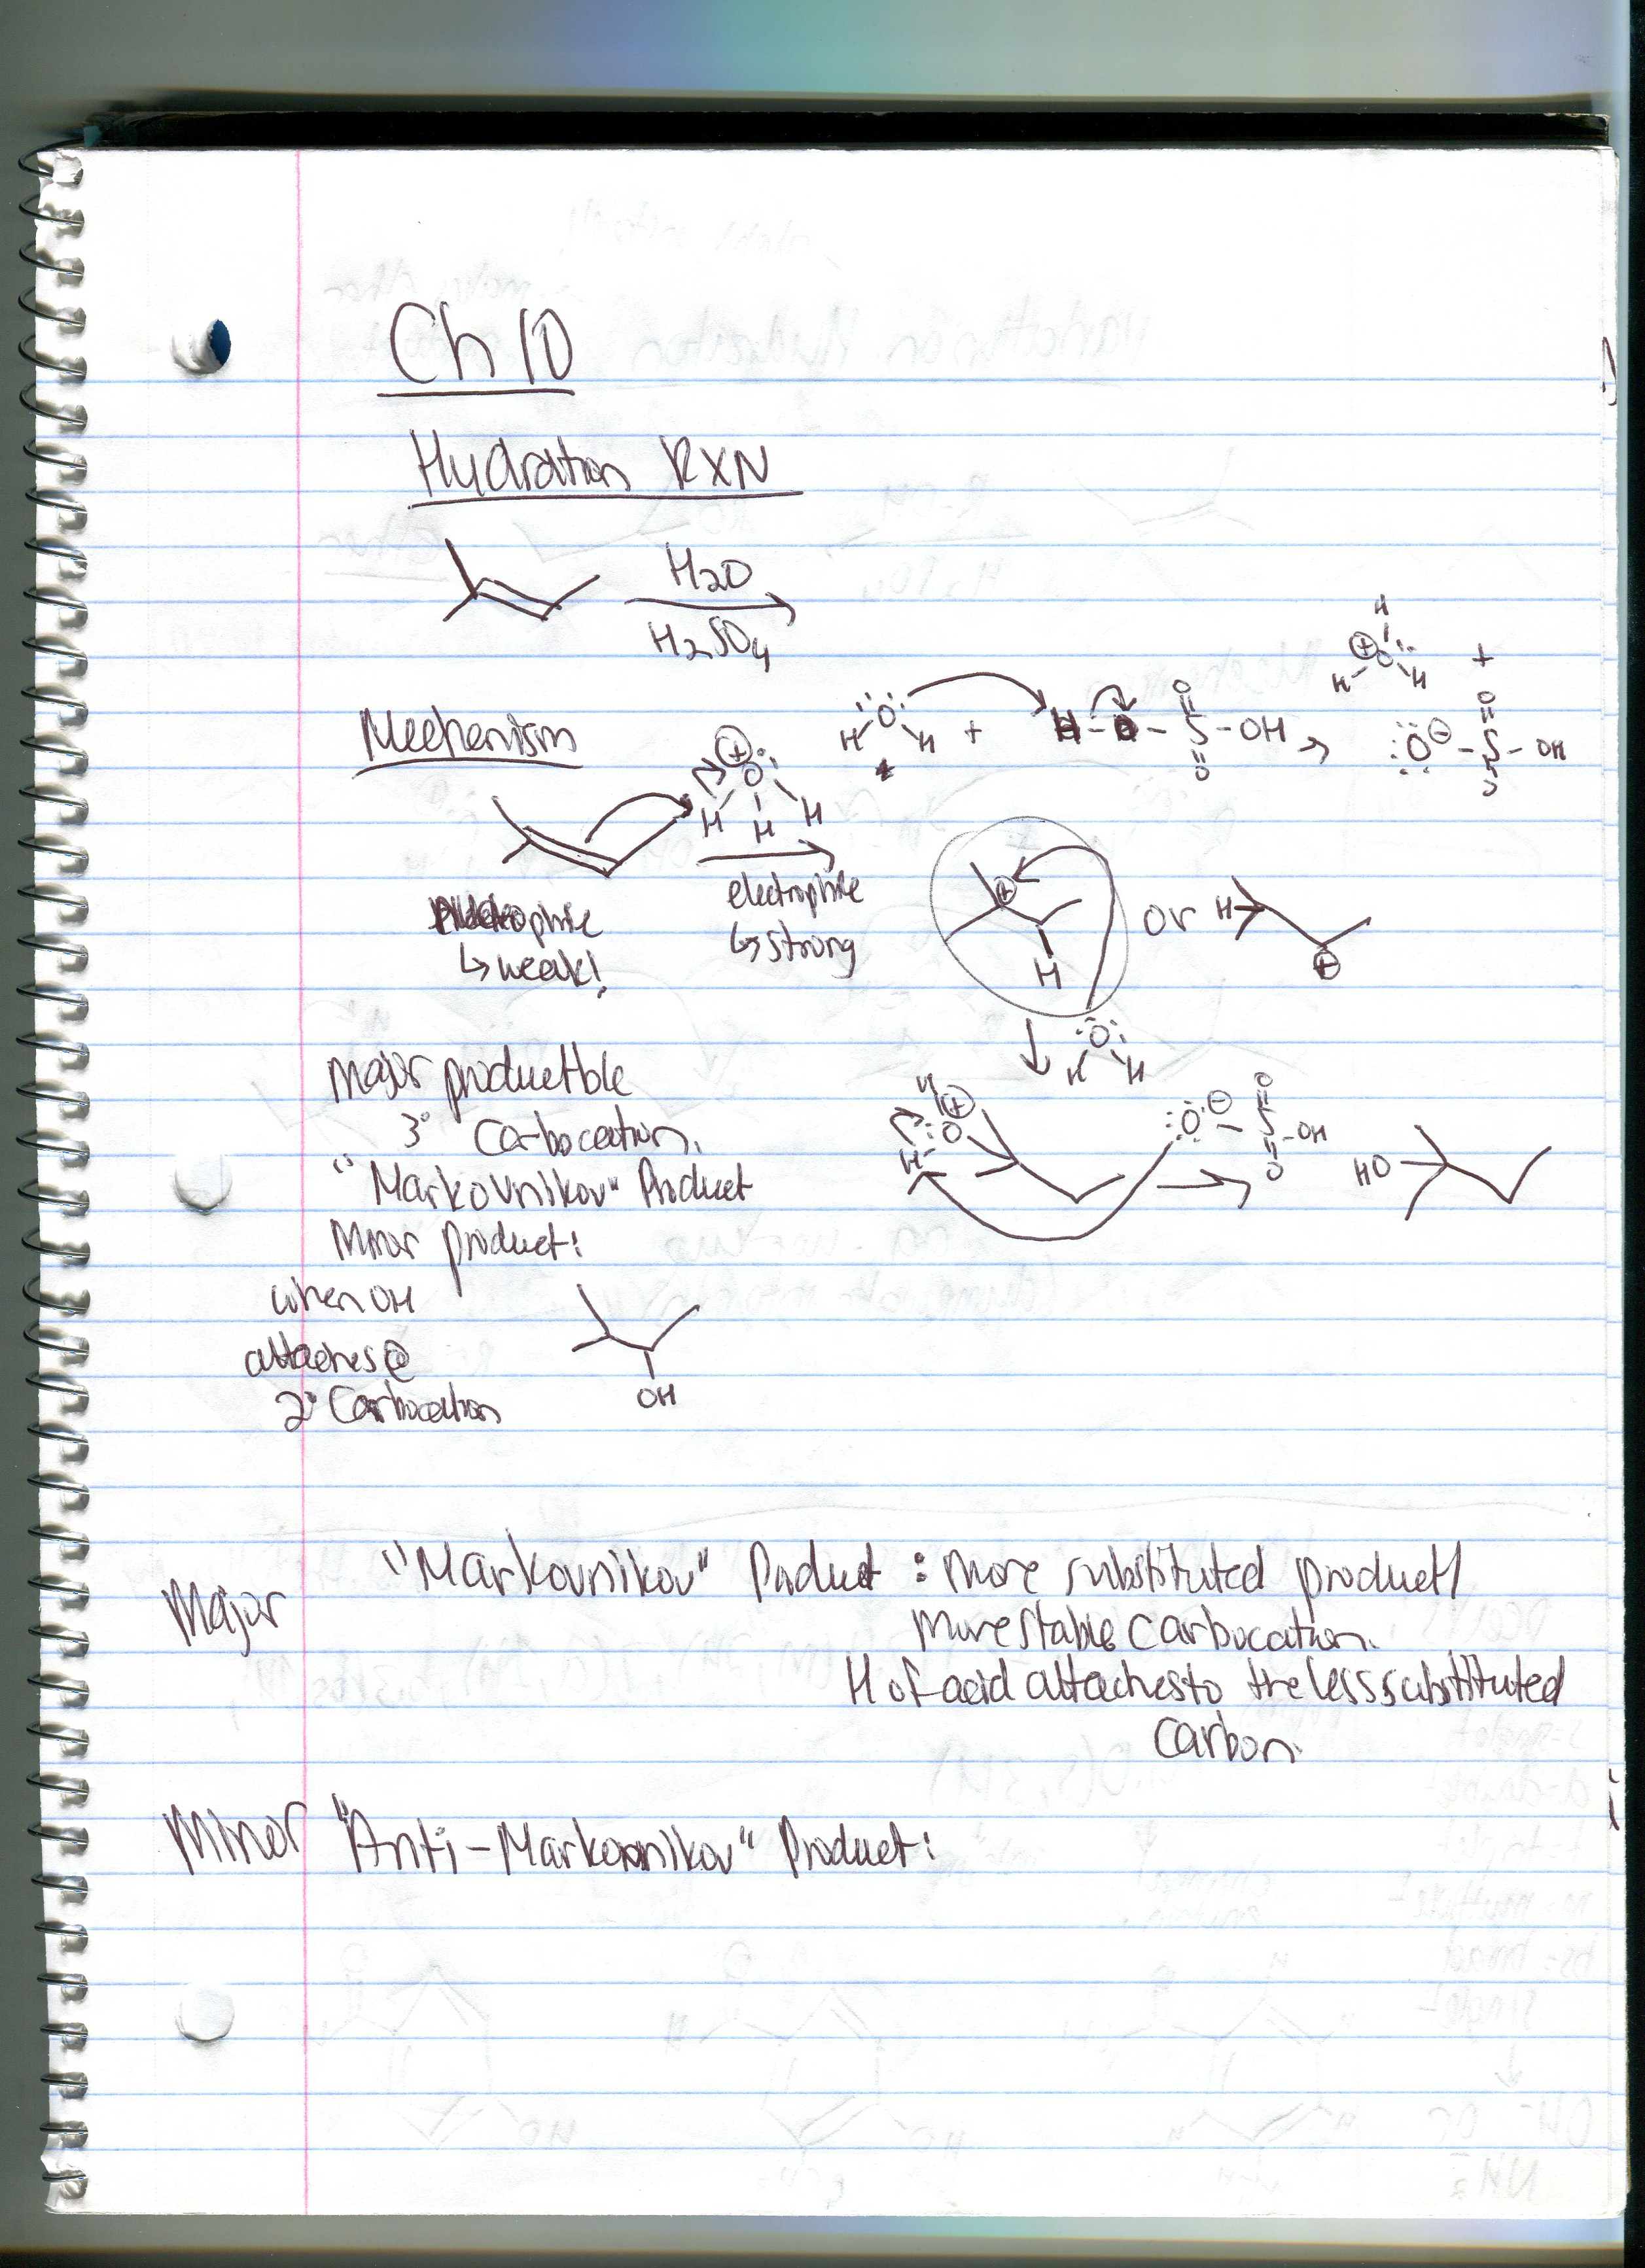 Ch 10
Hydration RXN
H2O
H2SO4
Mechanism
H O H + H - O - S - OH
O
O
H
⊕ O
H H +
O ⊖ - S - OH
O
⊕
O
H H H
electrophile
↳ strong
↳ weak!
⊕
H
or H
⊕
O
H H
major product
3° Carbocation.
"Markovnikov" Product
Minor product:
when OH
attaches @
2° Carbocation
OH
H ⊕
O
H
O ⊖ S - OH
O
O
HO
Major
"Markovnikov" Product : more substituted product/
more stable carbocation.
H of acid attaches to the less substituted
carbon.
Minor "Anti-Markovnikov" Product: